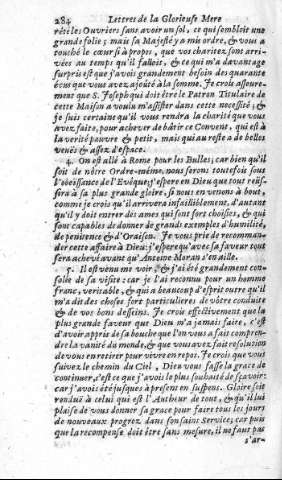 284 Lettres de la Glorieuse Mere
rété les Ouvriers sans avoir un sol, ce qui sembloit une
grande folie; mais sa Majesté y a mis ordre, & vous a
touché le cœur si à propos, que vos charitez sont arri-
vées au temps qu'il falloit, & ce qui m'a davantage
surpris est que j'avois grandement besoin des quarante
écus que vous avez ajoûté à la somme. Je crois asseuré-
ment que S. Joseph qui doit être le Patron Titulaire de
cette Maison a voulu m'assister dans cette necessité; &
je suis certaine qu'il vous rendra la charité que vous
avez faite, pour achever de bâtir ce Convent, qui est à
la verité pauvre & petit, mais qui au reste a de belles
veuës & assez d'espace.
4. On est allé à Rome pour les Bulles; car bien qu'il
soit de nôtre Ordre-même, nous serons toutefois sous
l'obeïssance de l'Evêque; j'espere en Dieu que tout reüs-
sira à sa plus grande gloire, si nous en venons à bout,
comme je crois qu'il arrivera infailliblement, d'autant
qu'il y doit entrer des ames qui sont fort choisies, & qui
sont capables de donner de grands exemples d'humilité,
de penitence & d'Oraison. Je vous prie de recomman-
der cette affaire à Dieu: j'espere qu'avec sa faveur tout
sera achevé avant qu'Antoine Moran s'en aille.
5. Il est venu me voir, & j'ai été grandement con-
solée de sa visite; car je l'ai reconnu pour un homme
franc, veritable, & qui a beaucoup d'esprit outre qu'il
m'a dit des choses fort particulieres de vôtre conduite
& de vos bons desseins. Je crois effectivement que la
plus grande faveur que Dieu m'a jamais faite, c'est
d'avoir appris de sa bouche que l'on vous a fait compren-
dre la vanité du monde, & que vous avez fait resolution
de vous en retirer pour vivre en repos. Je crois que vous
suivez le chemin du Ciel, Dieu vous fasse la grace de
continuer, c'est ce que j'avois le plus souhaité de sçavoir:
car j'avois été jusques à present en suspens. Gloire soit
renduë à celui qui est l'Autheur de tout, & qu'il lui
plaise de vous donner sa grace pour faire tous les jours
de nouveaux progrez dans son saint Service; car puis
que la recompense doit être sans mesure, il ne faut pas
s'ar-